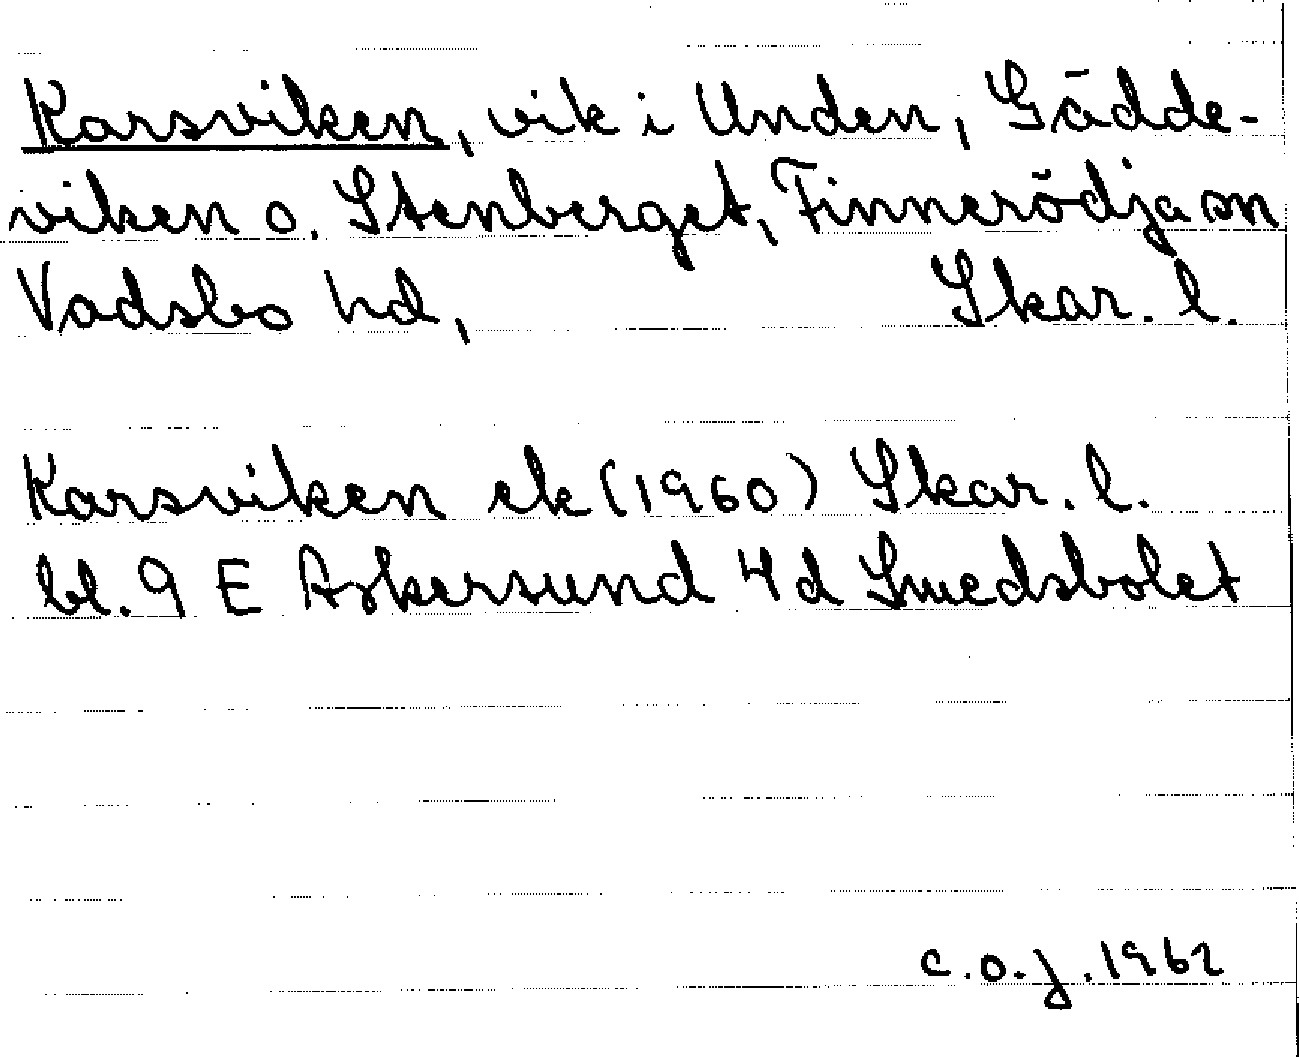 Karsviken, vik i Unden, Gädde-
viken o. Stenberget, Finnerödja sn
Vadsbo hd, Skar. l.
Karsviken ek (1960) Skar. l.
bl. 9 E Askersund 4d Smedsbolet
C.O.J. 1962